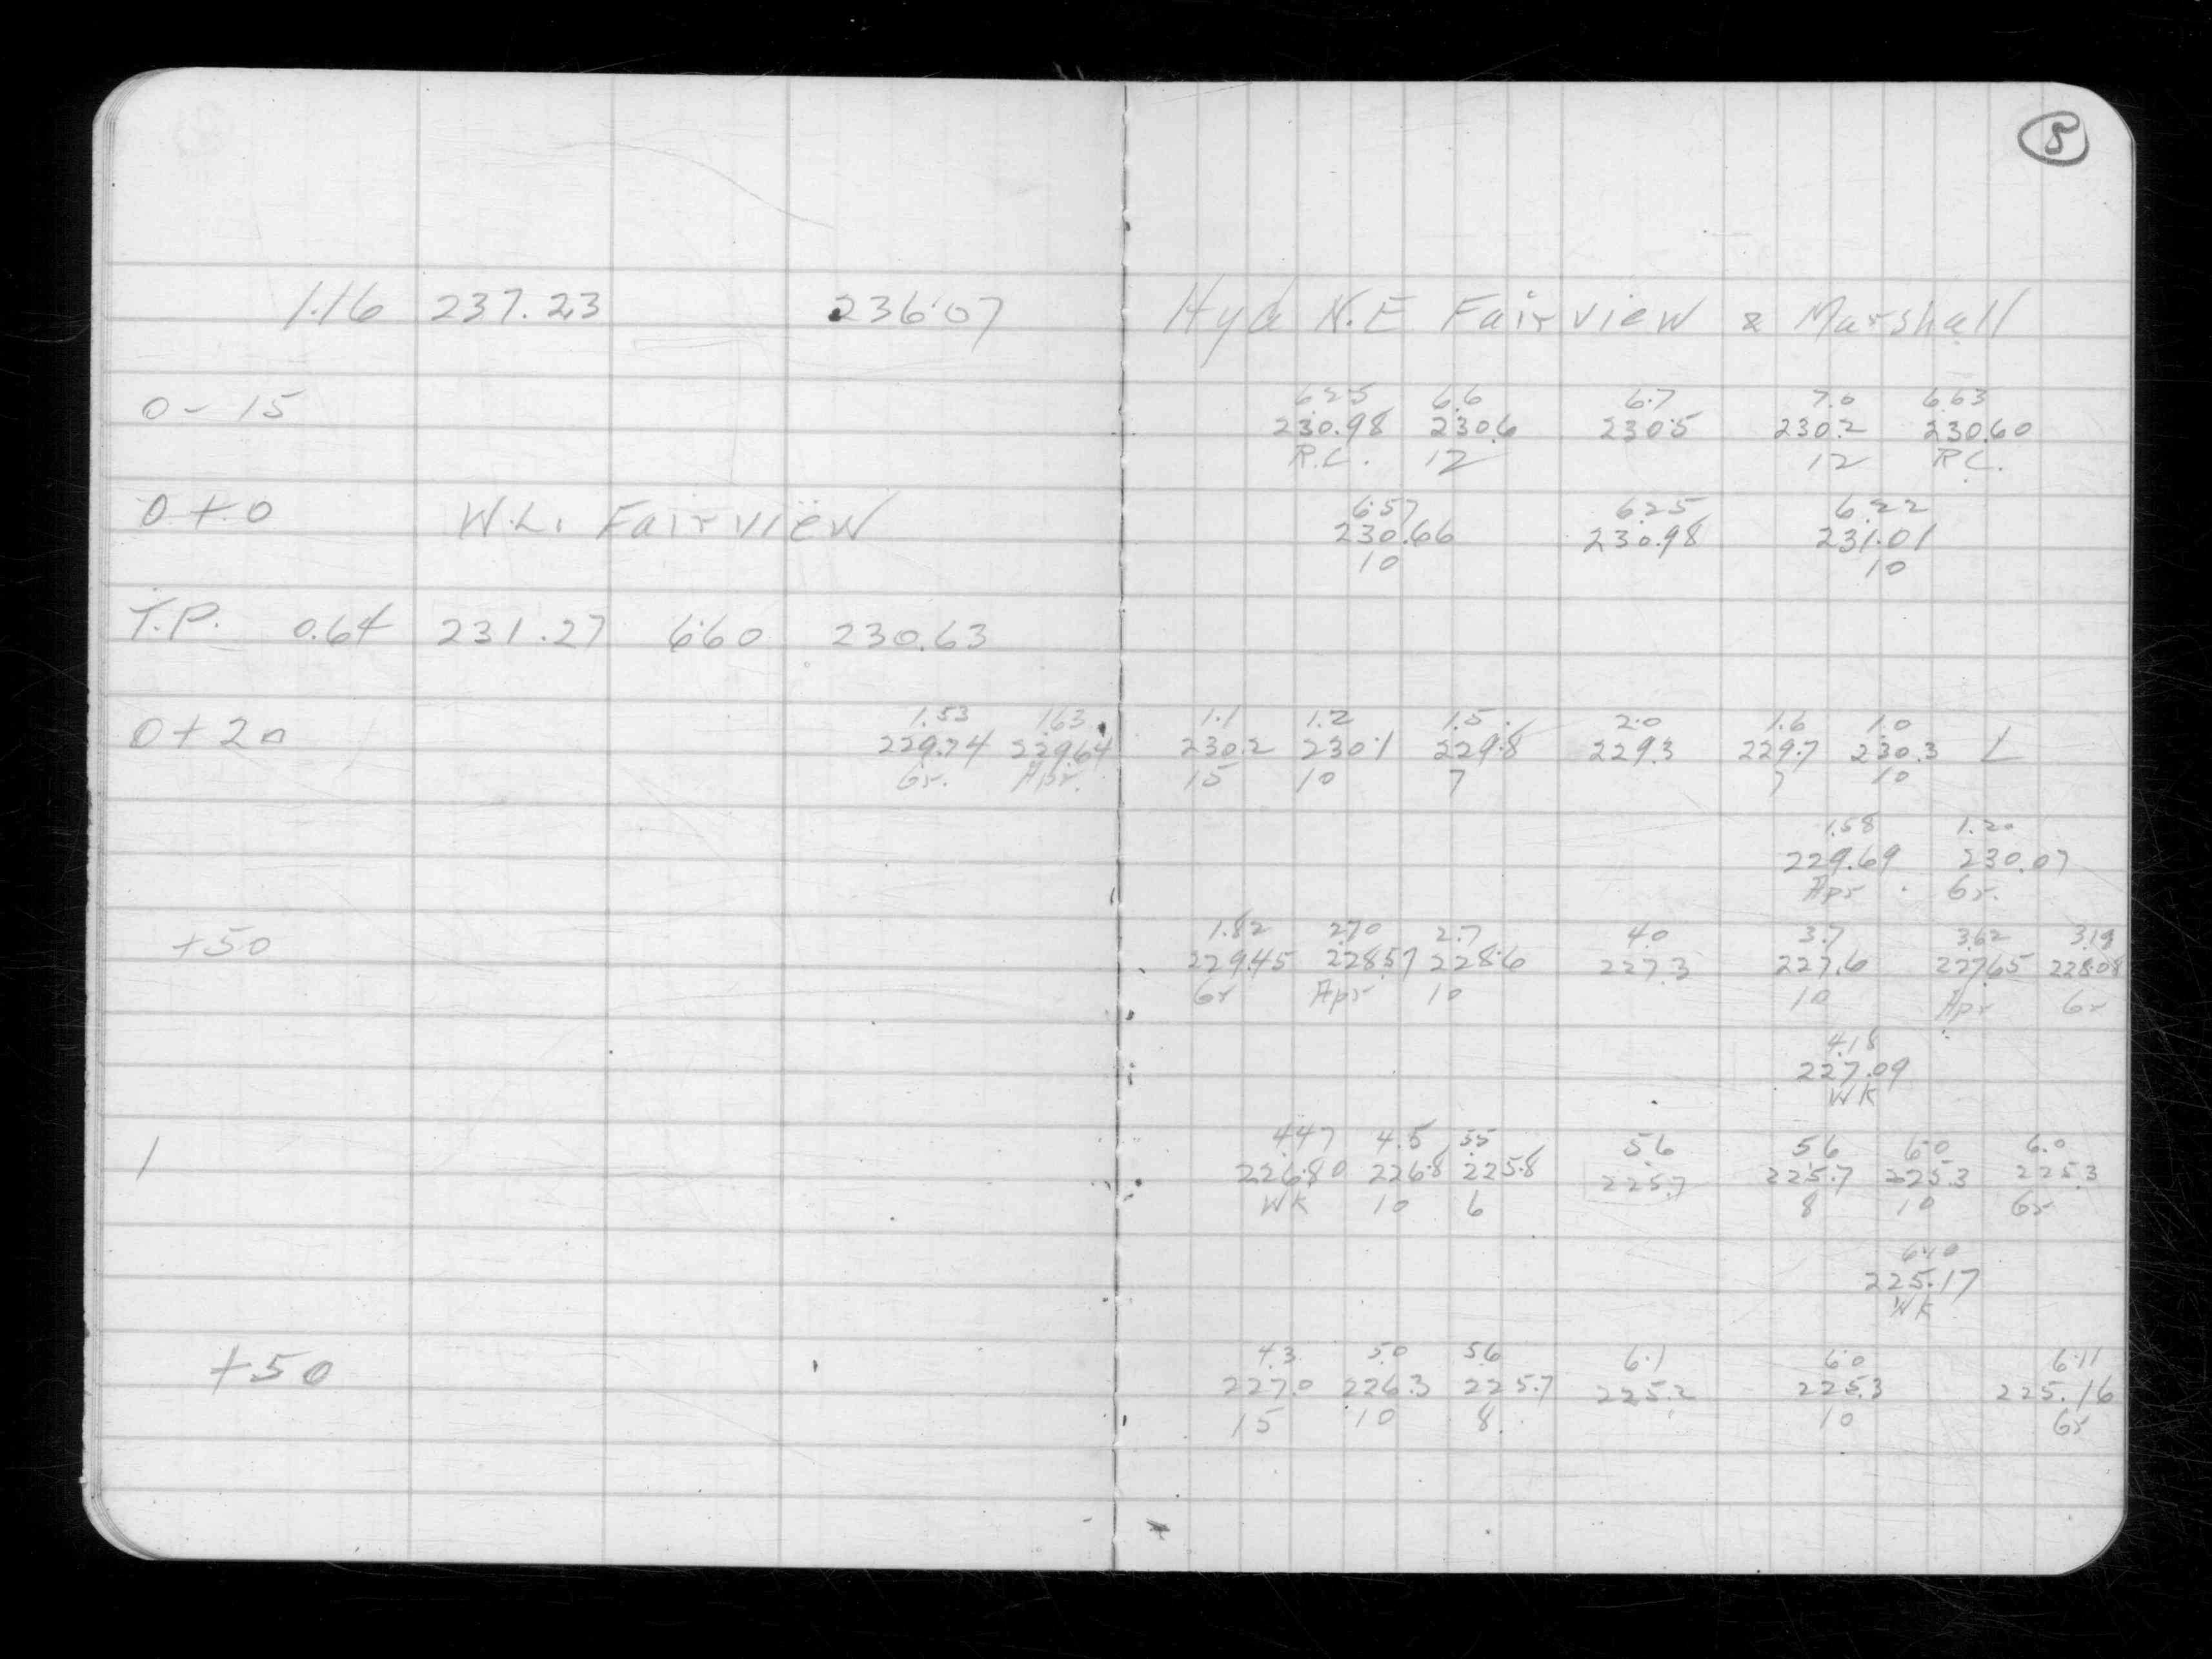 5
1.16 237.23 236.07 Hyd N.E Fairview & Marshall
6.25 6.6 6.7 7.0 6.63
0-15 230.98 230.6 230.5 230.2 230.60
R.C. 12 12 RC.
6.57 6.25 6.22
0+0 W.L. Fairview 230.66 230.98 231.01
10 10
T.P. 0.64 231.27 6.60 230.63
1.53 1.63 1.1 1.2 1.5 2.0 1.6 1.0
0+20 229.74 229.64 230.2 230.1 229.8 229.3 229.7 230.3 L
Gr. Apr. 15 10 7 7 10
1.58 1.20
229.69 230.07
Apr Gr.
1.82 2.70 2.7 4.0 3.7 3.62 3.19
+50 229.45 228.57 228.6 227.3 227.6 227.65 228.08
Gr Apr 10 10 Apr Gr
4.18
227.09
WK
4.47 4.5 5.5 5.6 5.6 6.0 6.0
1 226.80 226.8 225.8 225.7 225.7 225.3 225.3
WK 10 6 8 10 Gr
6.10
225.17
WK
4.3 5.0 5.6 6.1 6.0 6.11
+50 227.0 226.3 225.7 225.2 225.3 225.16
15 10 8 10 Gr